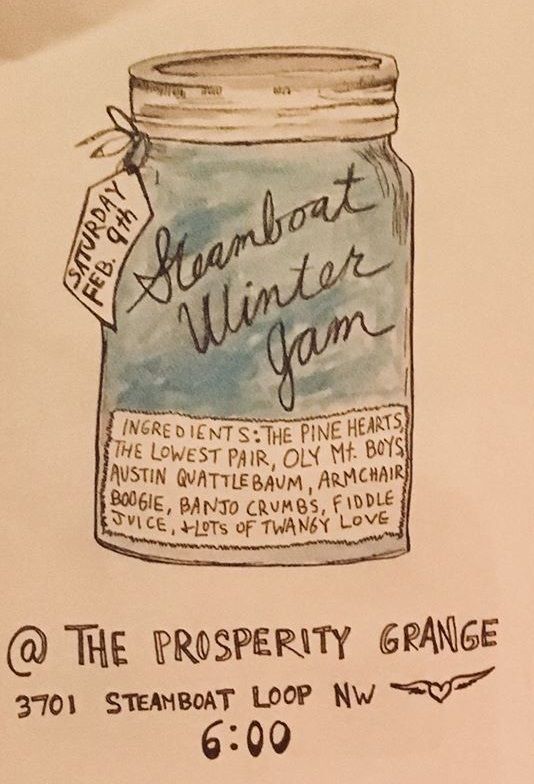 SATURDAY
FEB. 9th
Steamboat
Winter
Jam
INGREDIENTS: THE PINE HEARTS,
THE LOWEST PAIR, OLY Mt. BOYS,
AUSTIN QUATTLEBAUM, ARMCHAIR
BOOGIE, BANJO CRUMBS, FIDDLE
JUICE, + LOTS OF TWANGY LOVE
@ THE PROSPERITY GRANGE
3701 STEAMBOAT LOOP NW
6:00